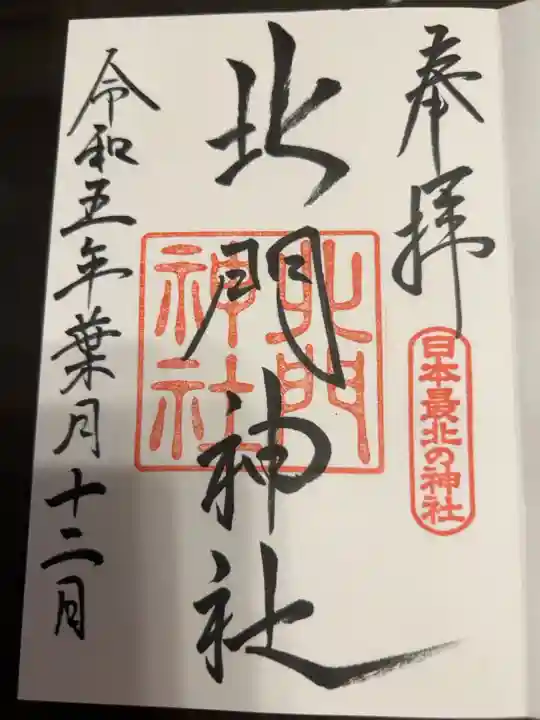 奉拝
日本最北の神社
北門神社
北門神社
令和五年葉月十二日